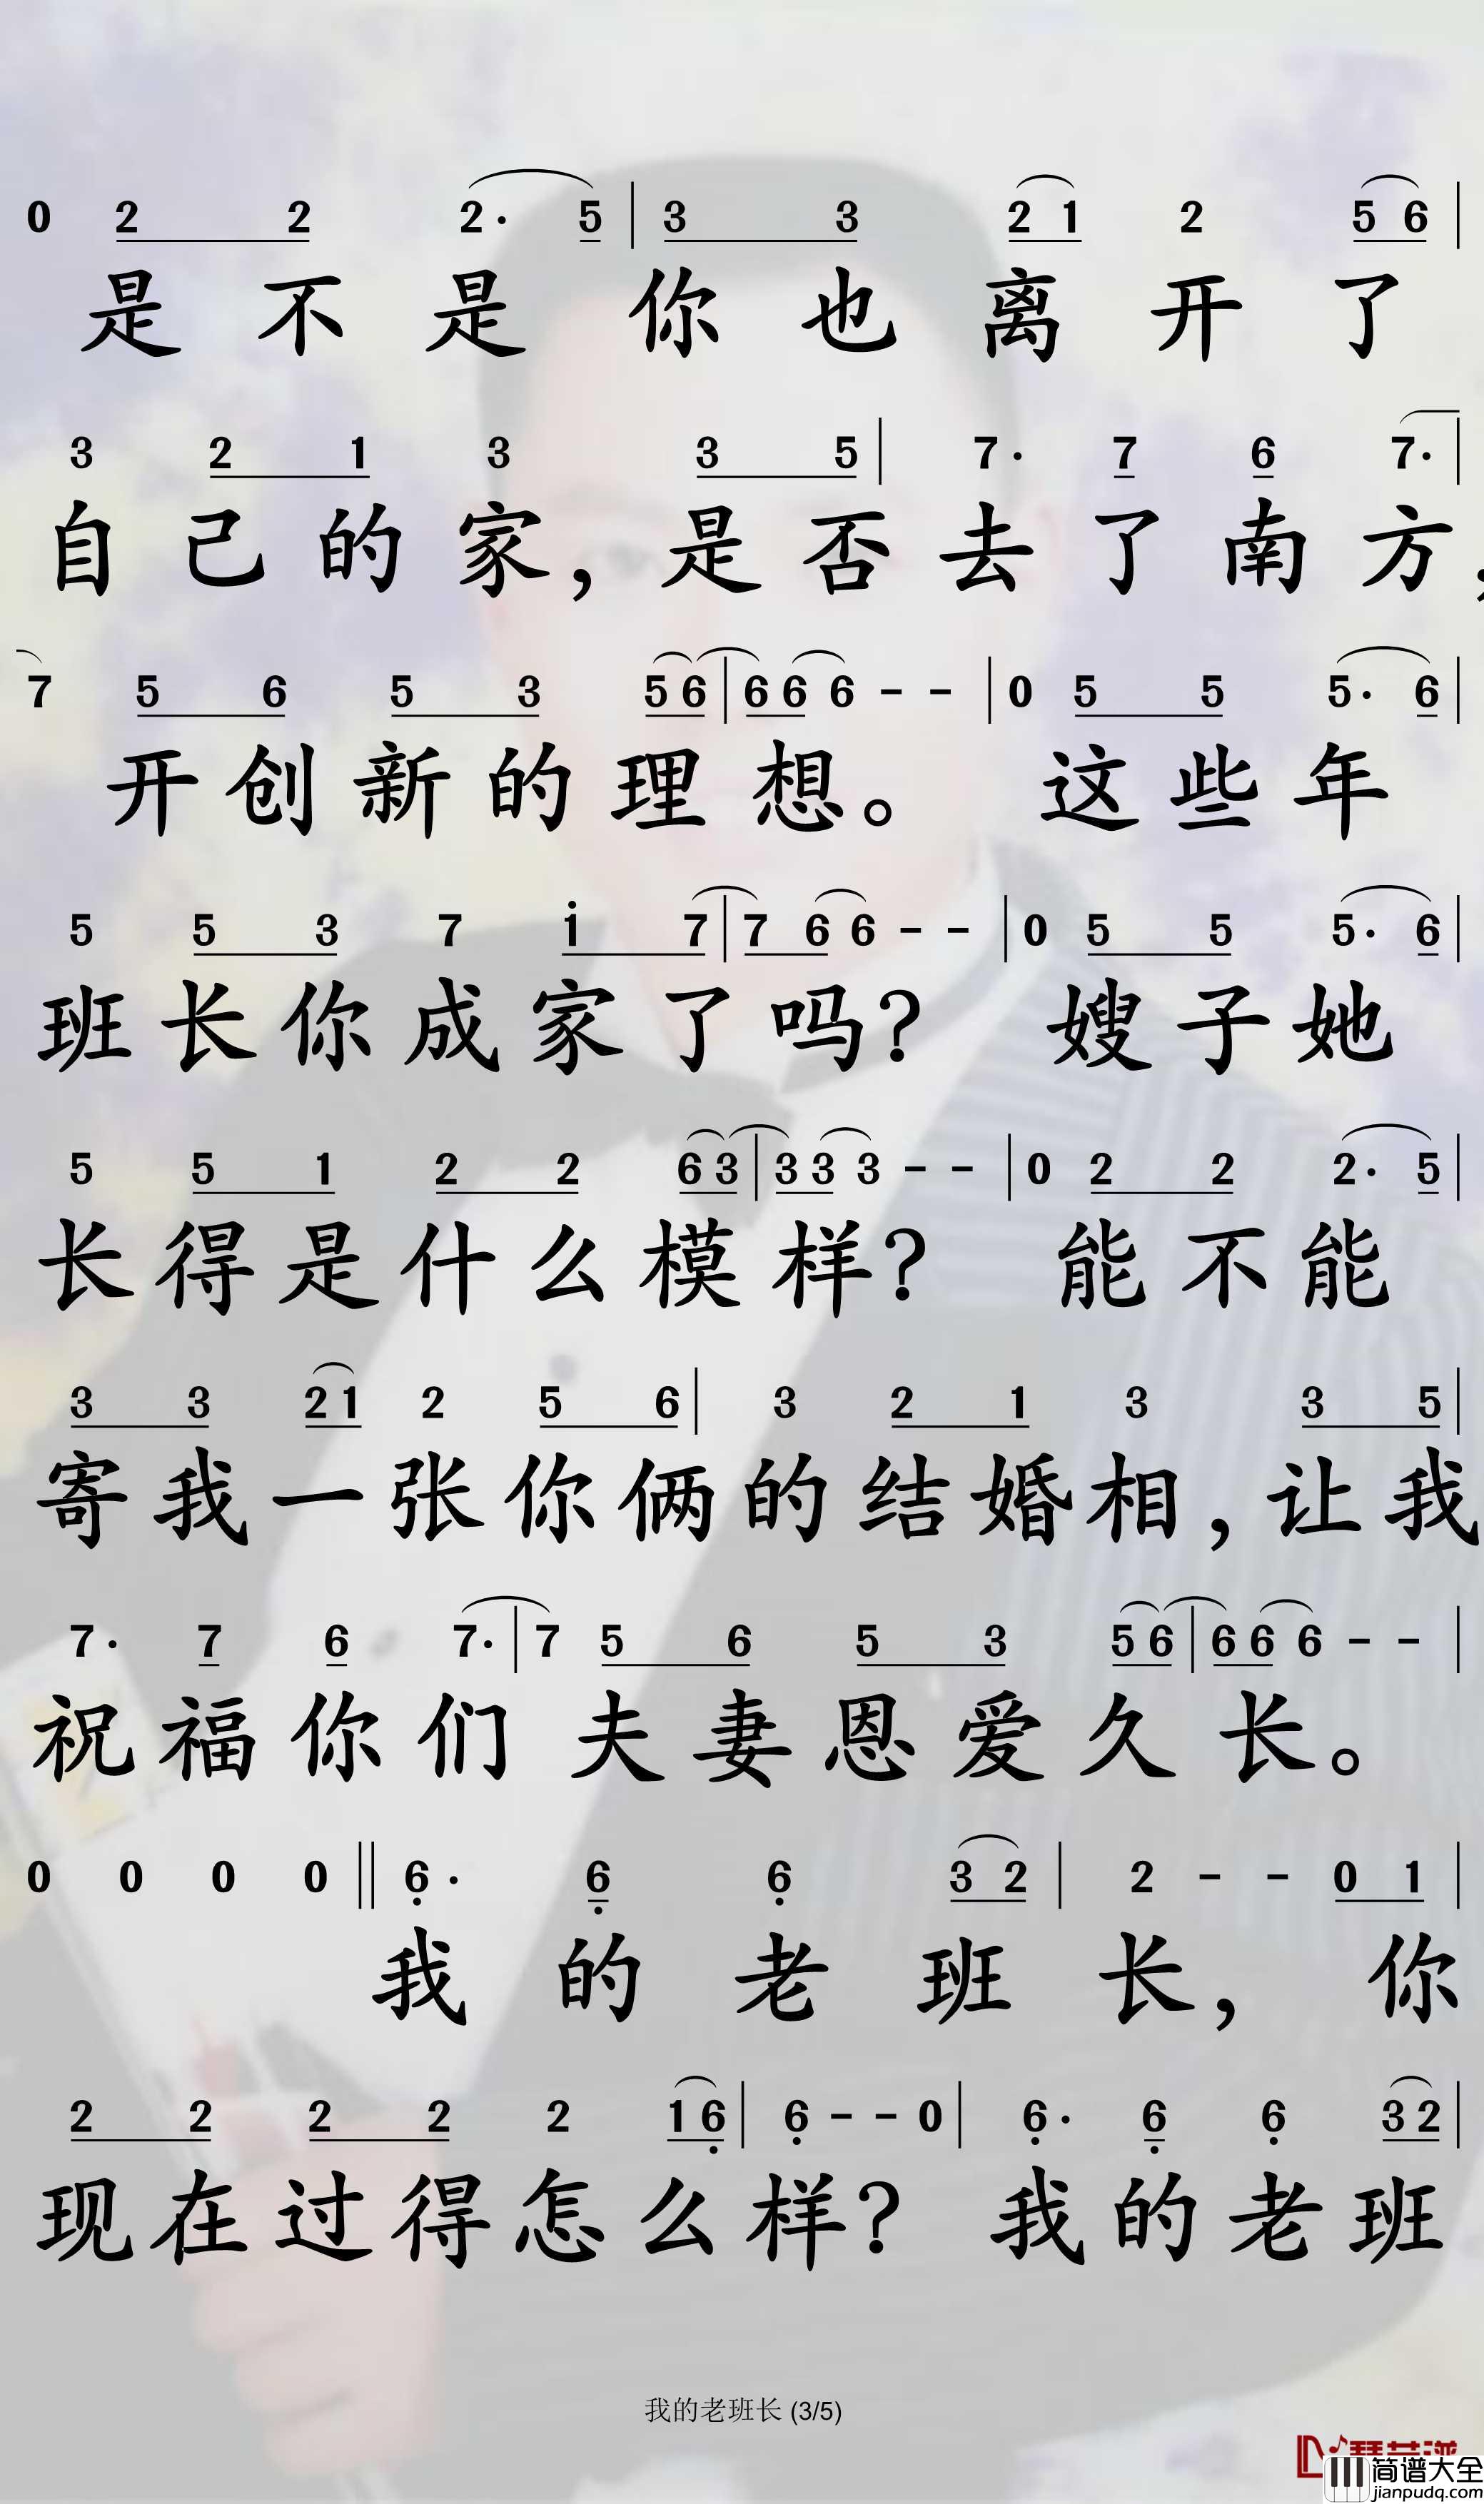 0 2 2 2· 5 | 3 3 2 1 2 5 6 |
是不是你也离开了
3 2 1 3 3 5 | 7· 7 6 7· |
自己的家，是否去了南方，
7 5 6 5 3 5 6 | 6 6 6 - - | 0 5 5 5· 6 |
开创新的理想。 这些年
5 5 3 7 i 7 | 7 6 6 - - | 0 5 5 5· 6 |
班长你成家了吗？ 嫂子她
5 5 1 2 2 6 3 | 3 3 3 - - | 0 2 2 2· 5 |
长得是什么模样？ 能不能
3 3 2 1 2 5 6 | 3 2 1 3 3 5 |
寄我一张你俩的结婚相，让我
7· 7 6 7· | 7 5 6 5 3 5 6 | 6 6 6 - - |
祝福你们夫妻恩爱久长。
0 0 0 0 || 6̣· 6̣ 6̣ 3 2 | 2 - - 0 1 |
我的老班长，你
2 2 2 2 2 1 6̣ | 6̣ - - 0 | 6̣· 6̣ 6̣ 3 2 |
现在过得怎么样？ 我的老班
我的老班长 (3/5)
简谱大全
jianpudq.com